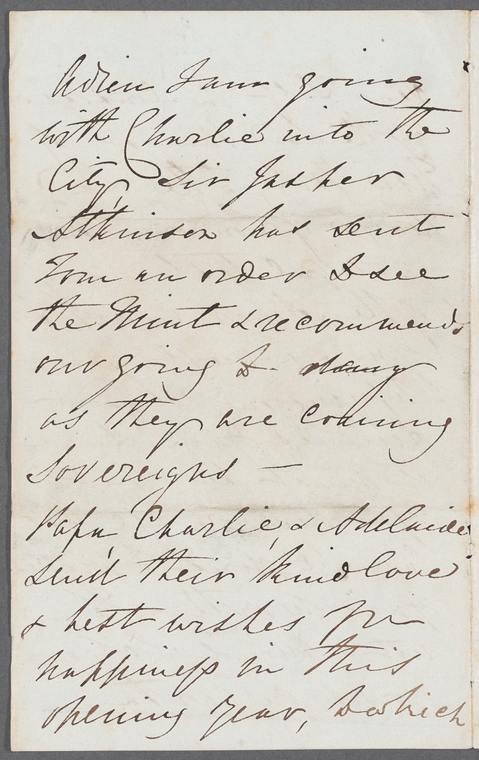 Adieu I am going
with Charlie into the
City, Sir Jasper
Atkinson has sent
Tom an order to see
the Mint & recommends
our going to-day
as they are coining
Sovereigns —
Papa, Charlie, & Adelaide
send their kind love
& best wishes for
happiness in this
opening year, to which